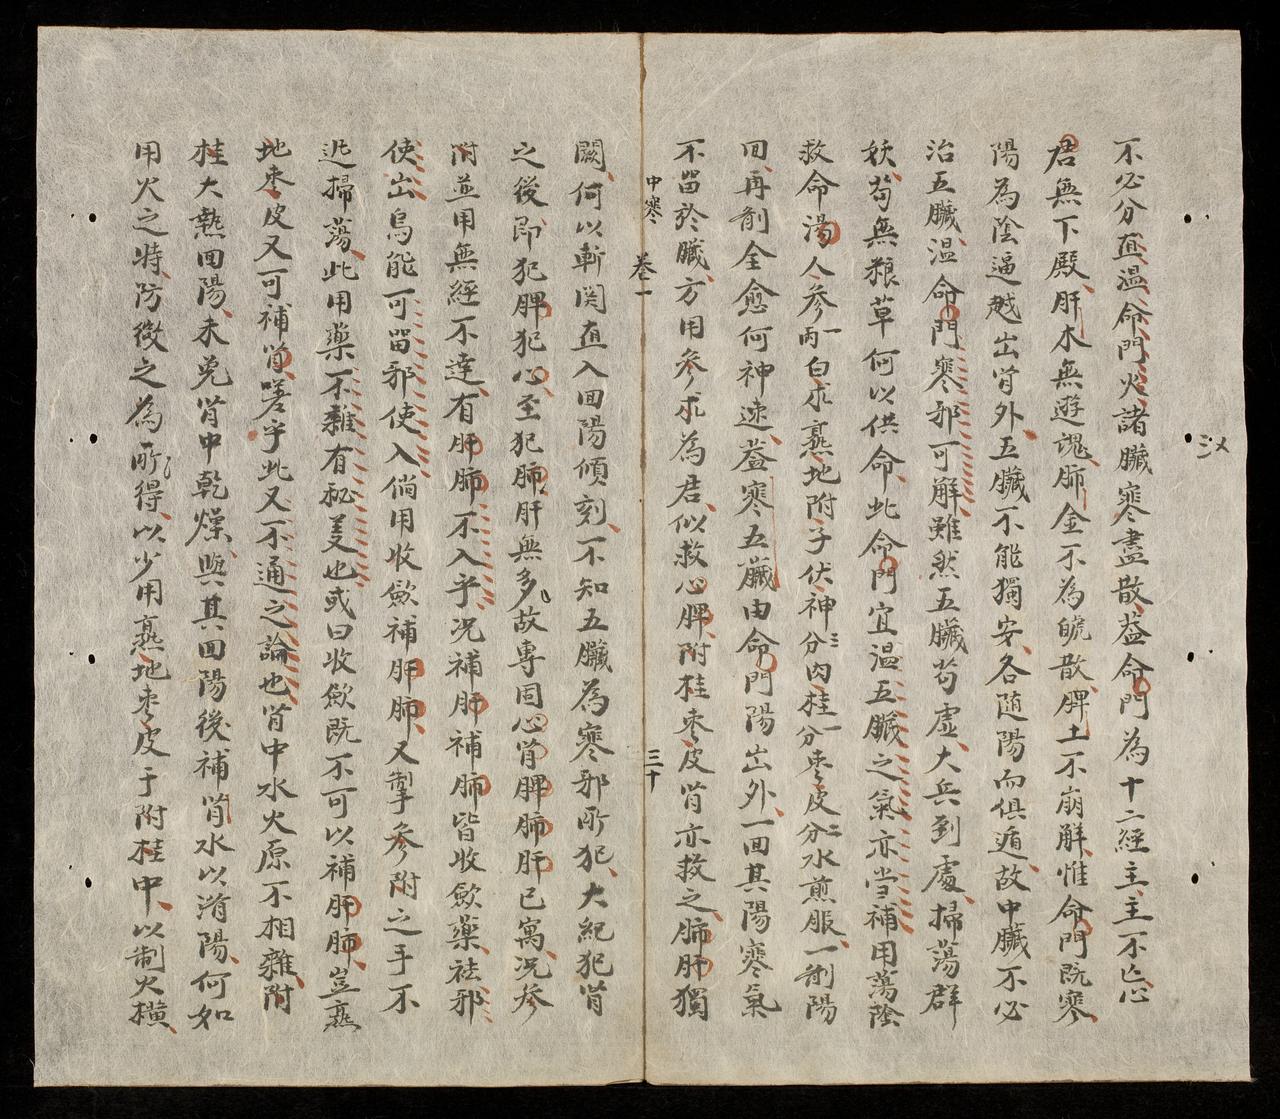 不必分直温命門火諸臓寒盡散蓋命門為十二經主主不亡心
君無下殿肝木無遊魂肺金不為皖散脾土不崩解惟命門既寒
陽為陰逼越出肾外五臓不能獨安各随陽而俱遁故中臓不必
治五臓温命門寒邪可解雖然五臓苟虚大兵到處掃蕩群
妖苟無粮草何以供命此命門宜温五臓之氣亦當補用蕩陰
救命湯人参一両白朮熟地附子伏神三分肉桂一分枣皮二分水煎服一劑陽
回再劑全愈何神速蓋寒五臓由命門陽出外一回其陽寒氣
不留於臓方用参朮為君似救心脾附桂枣皮肾亦救之肺肝獨
中寒 卷一 三十
闕何以斬関直入回陽傾刻不知五臓為寒邪所犯大紀犯肾
之後即犯脾犯心至犯肺肝無多故専固心肾脾肺肝已寓况参
附並用無經不達有肝肺不入乎况補肝補肺皆收斂藥祛邪
使出烏能可留邪使入倘用收斂補肝肺又掣参附之手不
迯掃蕩此用藥不雜有秘㐮也或曰收斂既不可以補肝肺豈熟
地枣皮又可補肾嗟乎此又不通之論也肾中水火原不相雜附
桂大熱回陽未免肾中乾燥與其回陽後補肾水以濟陽何如
用火之特防微之為所得以少用熟地枣皮于附桂中以制火横